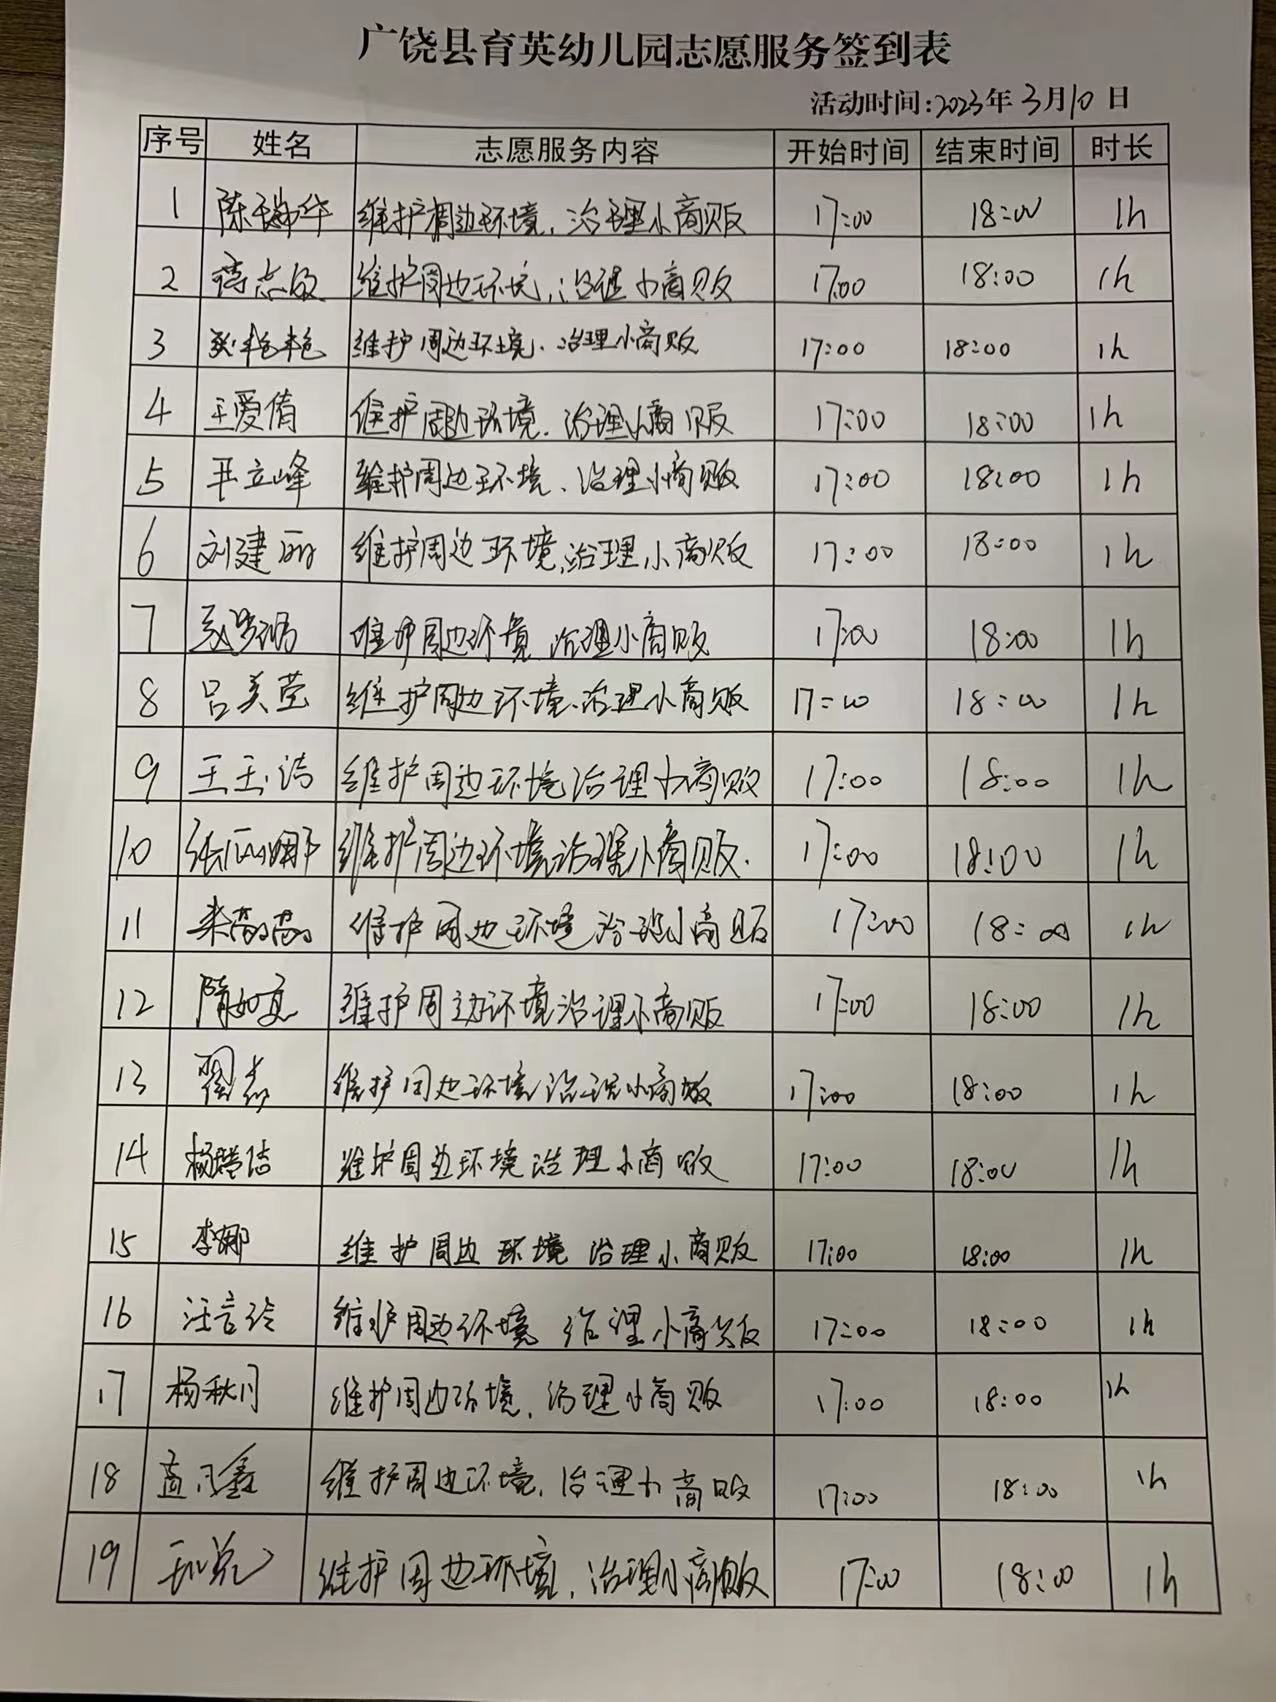 广饶县育英幼儿园志愿服务签到表
活动时间:2023年3月10日
序号 姓名 志愿服务内容 开始时间 结束时间 时长
1 陈瑞华 维护周边环境,治理小商贩 17:00 18:00 1h
2 蒋志敏 维护周边环境,治理小商贩 17:00 18:00 1h
3 维护周边环境.治理小商贩 17:00 18:00 1h
4 王爱倩 维护周边环境.治理小商贩 17:00 18:00 1h
5 立峰 维护周边环境、治理小商贩 17:00 18:00 1h
6 刘建丽 维护周边环境,治理小商贩 17:00 18:00 1h
7 维护周边环境 治理小商贩 17:00 18:00 1h
8 吕美莹 维护周边环境.治理小商贩 17:00 18:00 1h
9 王玉洁 维护周边环境治理小商贩 17:00 18:00 1h
10 张娜 维护周边环境治理小商贩. 17:00 18:00 1h
11 维护周边环境治理小商贩 17:00 18:00 1h
12 隋如意 维护周边环境治理小商贩 17:00 18:00 1h
13 维护周边环境治理小商贩 17:00 18:00 1h
14 杨 维护周边环境治理小商贩 17:00 18:00 1h
15 李娜 维护周边环境 治理小商贩 17:00 18:00 1h
16 汪言玲 维护周边环境 治理小商贩 17:00 18:00 1h
17 杨秋月 维护周边环境,治理小商贩 17:00 18:00 1h
18 鑫 维护周边环境,治理小商贩 17:00 18:00 1h
19 维护周边环境,治理小商贩 17:00 18:00 1h